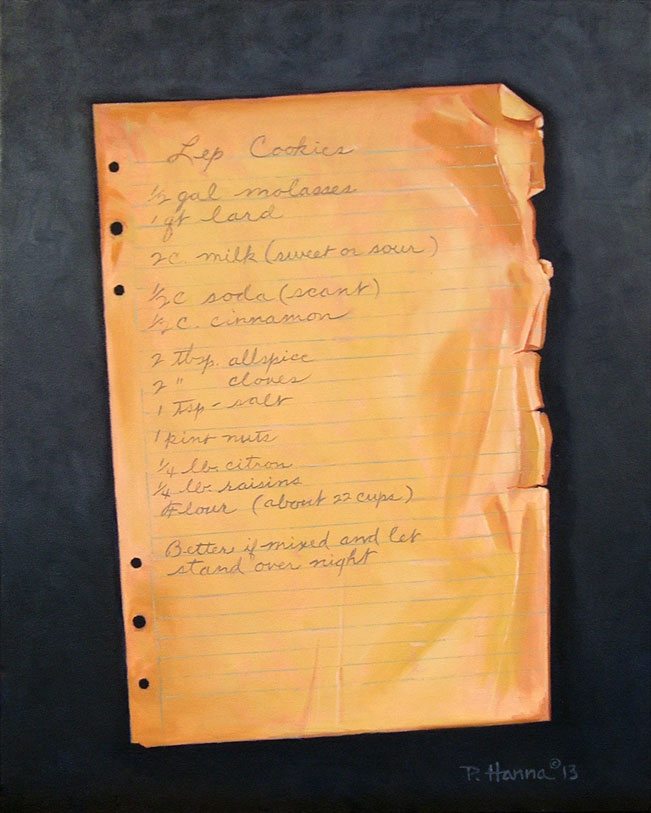 Lep Cookies
1/2 gal molasses
1 qt lard
2 c. milk (sweet or sour)
1/2 c soda (scant)
1/2 c. cinnamon
2 tbsp. allspice
2 " cloves
1 tsp - salt
1 pint nuts
1/4 lb. citron
1/4 lb. raisins
Flour (about 22 cups)
Better if mixed and let
stand over night
P. Hanna © 13